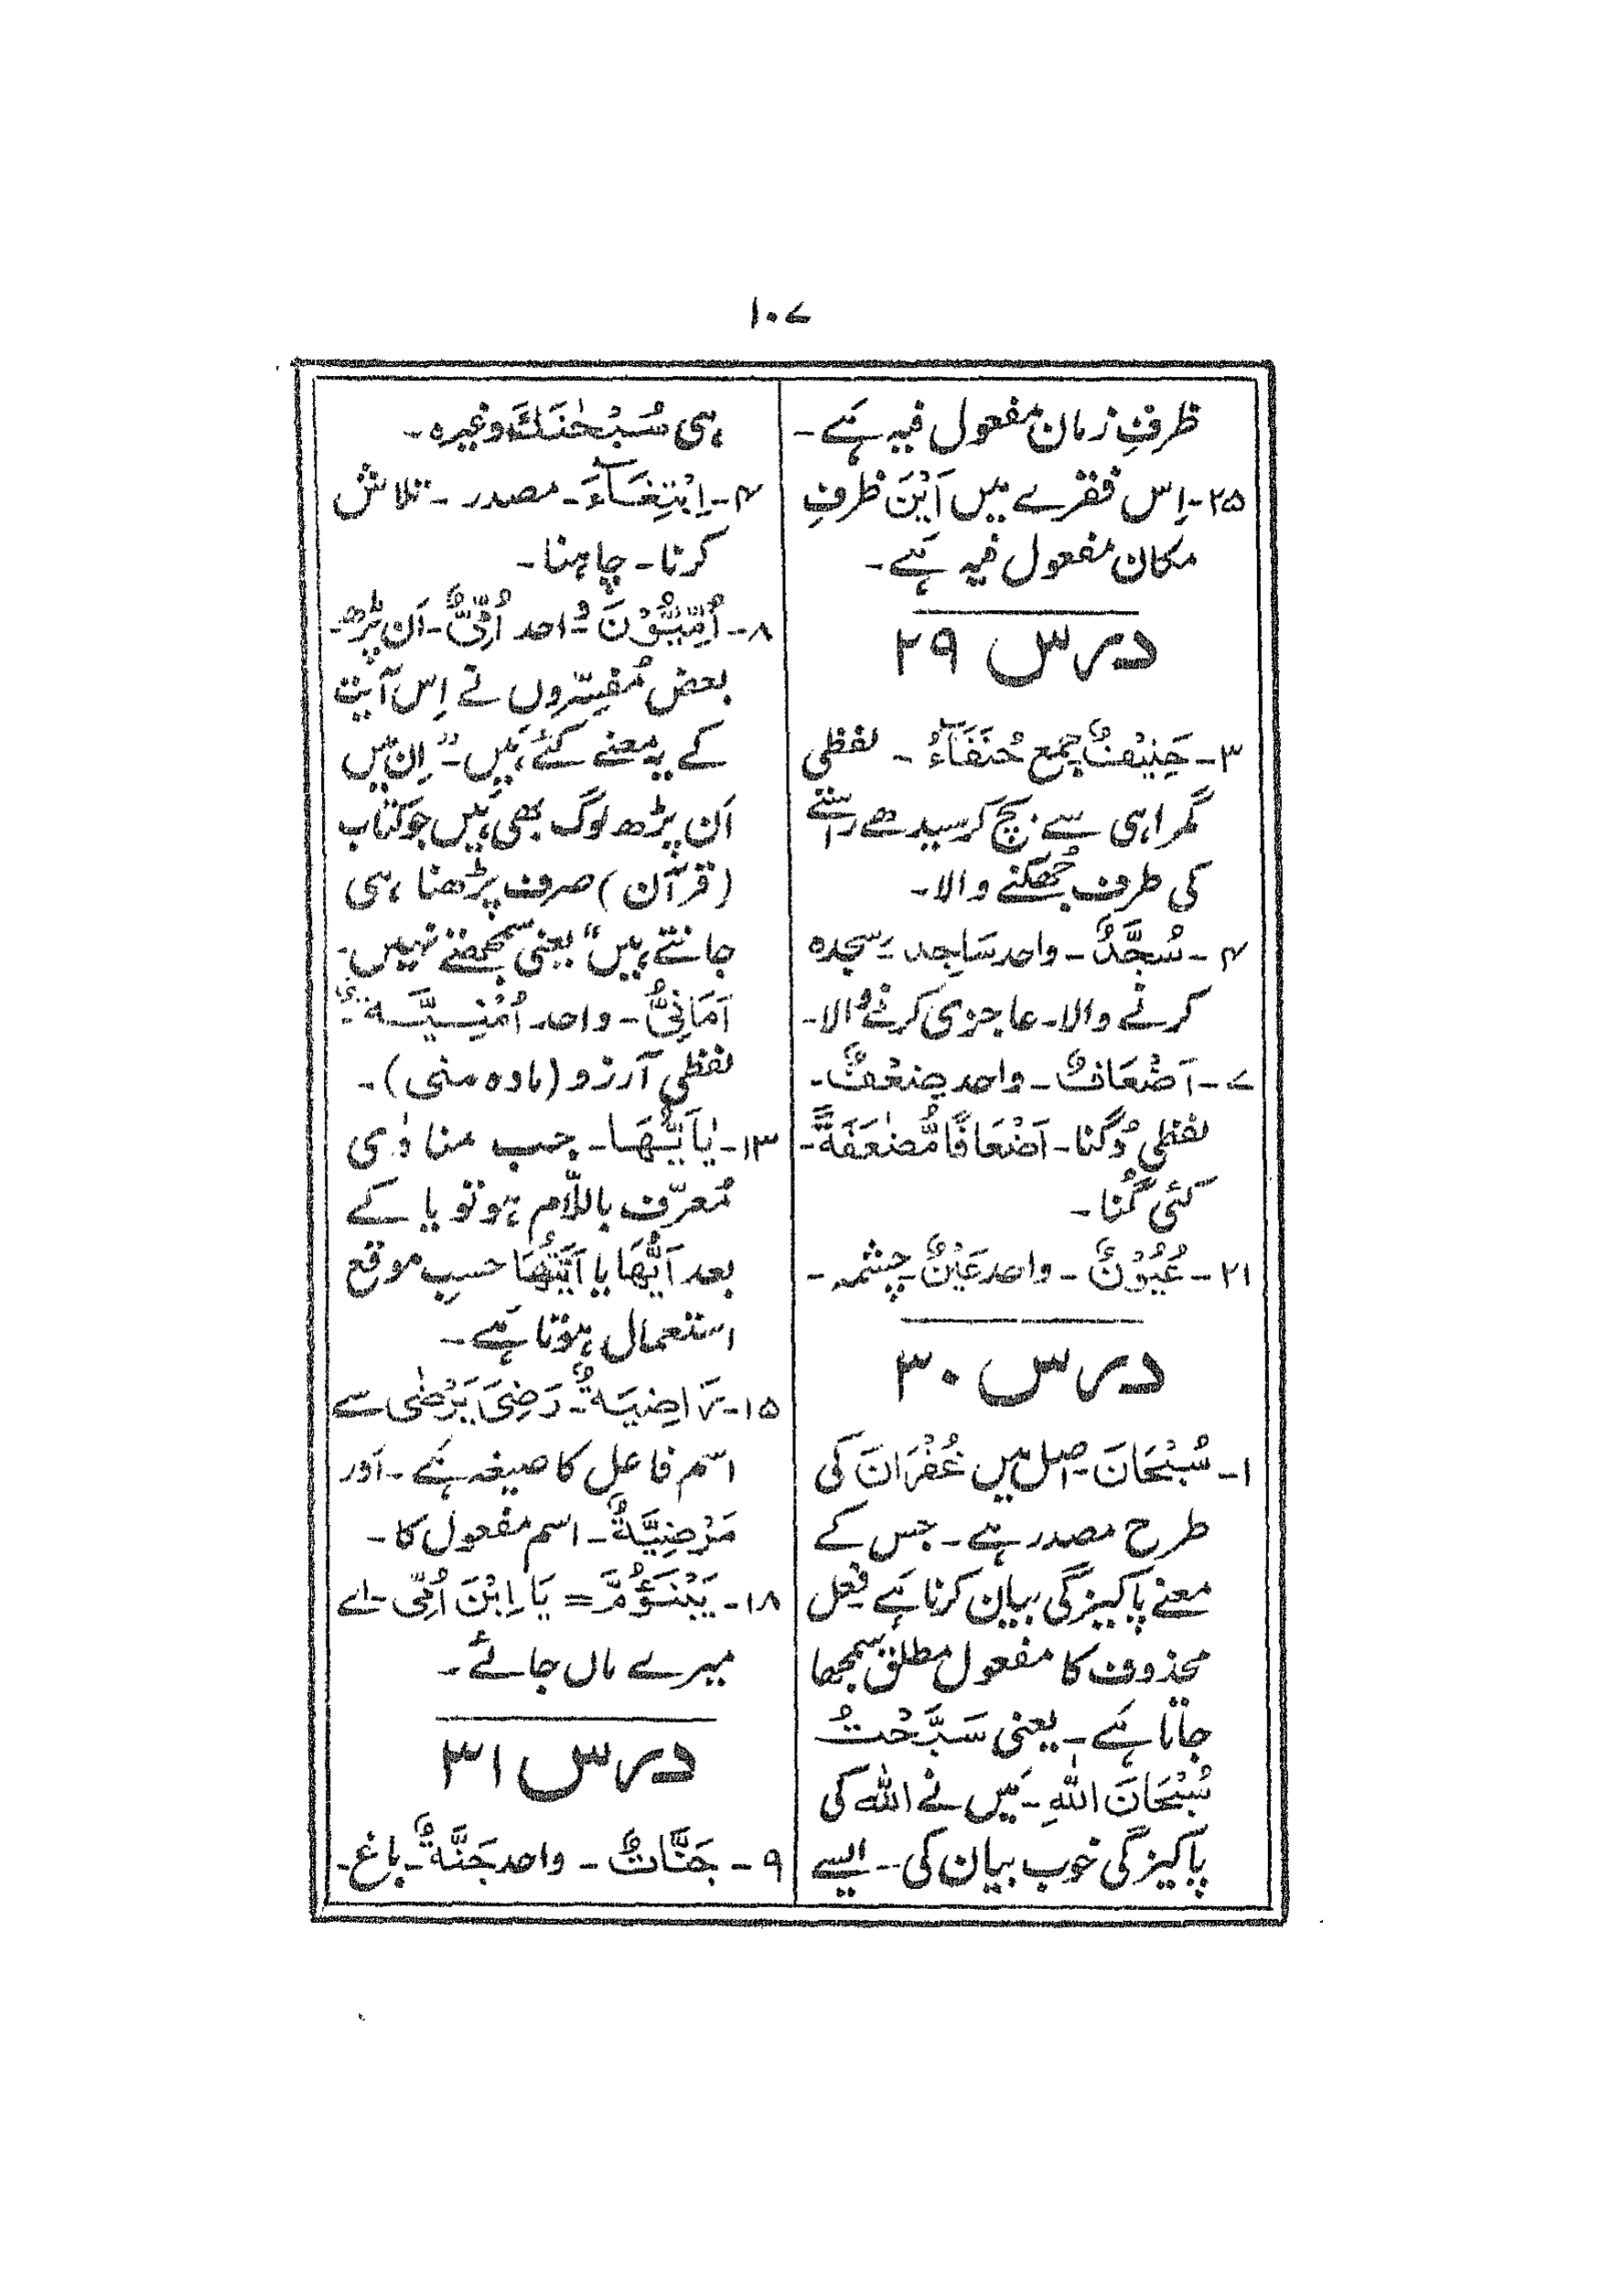 ۱۰۷
ظرفِ زمان مفعول فیہ ہَے۔
۲۵۔ اِس فقرے میں اَیْنَ ظرفِ
مکان مفعول فیہ ہَے۔
درس ۲۹
۳۔ حَنِیْفٌ جمع حُنَفَآءُ۔ لفظی
گمراہی سے بچ کر سیدھے راستے
کی طرف جھکنے والا۔
۴۔ سُجَّدٌ۔ واحد سَاجِد۔ سجدہ
کرنے والا۔ عاجزی کرنے والا۔
۷۔ اَضْعَافٌ۔ واحد ضِعْفٌ۔
لفظی دُگنا۔ اَضْعَافًا مُّضٰعَفَةً۔
کئی گُنا۔
۲۱۔ عُیُوْنٌ۔ واحد عَیْنٌ چشمہ۔
درس ۳۰
۱۔ سُبْحَانَ۔ اصل میں غُفْرَانَ کی
طرح مصدر ہے۔ جس کے
معنے پاکیزگی بیان کرنا ہَے فعل
محذوف کا مفعول مطلق سمجھا
جاتا ہَے۔ یعنی سَبَّحْتُ
سُبْحَانَ اللّٰهِ۔ مَیں نے اللہ کی
پاکیزگی خوب بیان کی۔ ایسے
ہی سُبْحٰنَكَ وغیرہ۔
۴۔ اِبْتِغَآءَ۔ مصدر۔ تلاش
کرنا۔ چاہنا۔
۸۔ اُمِّیُّوْنَ۔ واحد اُمِّیٌّ۔ اَن پڑھ۔
بعض مُفسّروں نے اِس آیت
کے یہ معنے کئے ہَیں۔ "اِن میں
اَن پڑھ لوگ بھی ہَیں جو کتاب
(قرآن) صرف پڑھنا ہی
جانتے ہَیں" یعنی سمجھتے نہیں۔
اَمَانِیُّ۔ واحد اُمْنِیَّةٌ۔
لفظی آرزو (مادہ منی)۔
۱۳۔ یٰاَیُّهَا۔ جب منادٰی
مُعرّف باللّام ہو تو یا کے
بعد اَیُّهَا یا اَیَّتُهَا حسبِ موقع
استعمال ہوتا ہَے۔
۱۵۔ رَاضِیَةٌ۔ رَضِیَ یَرْضٰی سے
اسم فاعل کا صیغہ ہَے۔ اَور
مَرْضِیَّةٌ۔ اسم مفعول کا۔
۱۸۔ یَبْنَؤُمَّ = یَا اِبْنَ اُمِّی۔ اے
میرے ماں جائے۔
درس ۳۱
۹۔ جَنَّاتٌ۔ واحد جَنَّةٌ۔ باغ۔